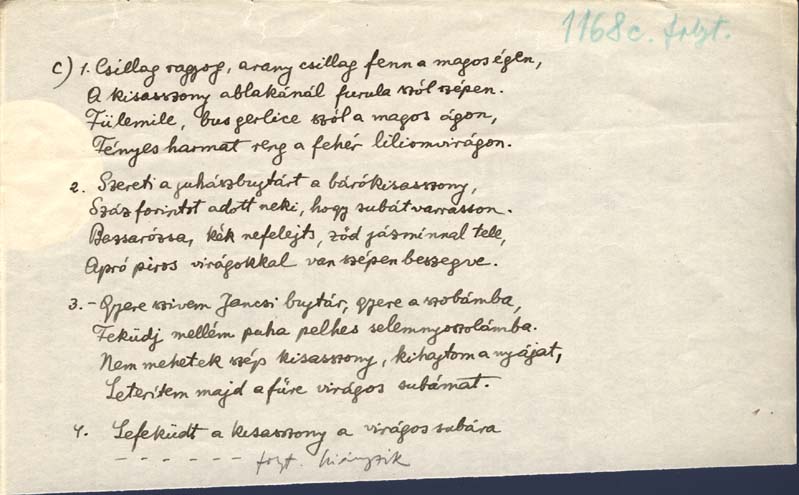 1168c. folyt.
C) 1. Csillag ragyog, arany csillag fenn a magos égen,
A kisasszony ablakánál furula szól szépen.
Fülemile, bus gerlice szól a magos ágon,
Fényes harmat reng a fehér liliomvirágon.
2. Szereti a juhászbujtárt a bárókisasszony,
Száz forintot adott neki, hogy subát varrasson.
Bazsarózsa, kék nefelejts, ződ jázminnal tele,
Apró piros virágokkal van szépen beszegve.
3. - Gyere szivem Jancsi bujtár, gyere a szobámba,
Feküdj mellém puha pelhes selemnyoszolámba.
Nem mehetek szép kisasszony, kihajtom a nyájat,
Leterítem majd a fűre virágos subámat.
4. Lefeküdt a kisasszony a virágos subára
- - - - - - folyt. hiányzik